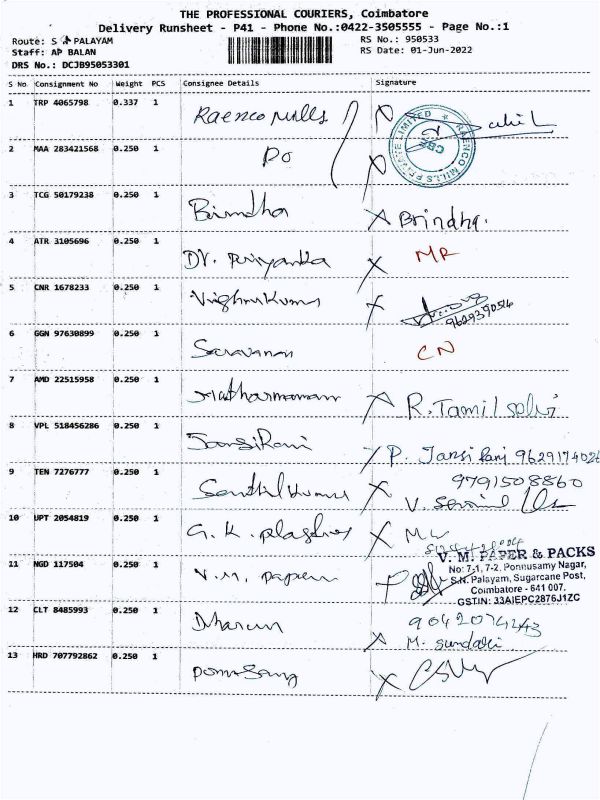 THE PROFESSIONAL COURIERS, Coimbatore
Delivery Runsheet - P41 - Phone No.:0422-3505555 - Page No.:1
Route: S PALAYAM
RS No.: 950533
Staff: AP BALAN
RS Date: 01-Jun-2022
DRS No.: DCJB95053301
S No Consignment No Weight PCS Consignee Details Signature
1 TRP 4065798 0.337 1 Raenco Mills
RAENCO MILLS PRIVATE LIMITED CBE
2 MAA 283421568 0.250 1 Do
3 TCG 50179238 0.250 1 Birndha Brindha.
4 ATR 3105696 0.250 1 Dr. Priyanka MR
5 CNR 1678233 0.250 1 Vighnukumar
9629390516
6 GGN 97630899 0.250 1 Saravanan CN
7 AMD 22515958 0.250 1 R. Tamil selvi
8 VPL 518456286 0.250 1 JansiRani P. Jansi Rani 9629174026
9 TEN 7276777 0.250 1 Senthil kumar 9791508860
10 UPT 2054819 0.250 1 G.K.
11 NGD 117504 0.250 1 V.M. Papers
V. M. PAPER & PACKS
No: 7-1, 7-2, Ponnusamy Nagar,
S.N. Palayam, Sugarcane Post,
Coimbatore - 641 007.
GSTIN: 33AIEPC2876J1ZC
12 CLT 8485993 0.250 1 Dharun
M. Sundari
13 HRD 707792862 0.250 1